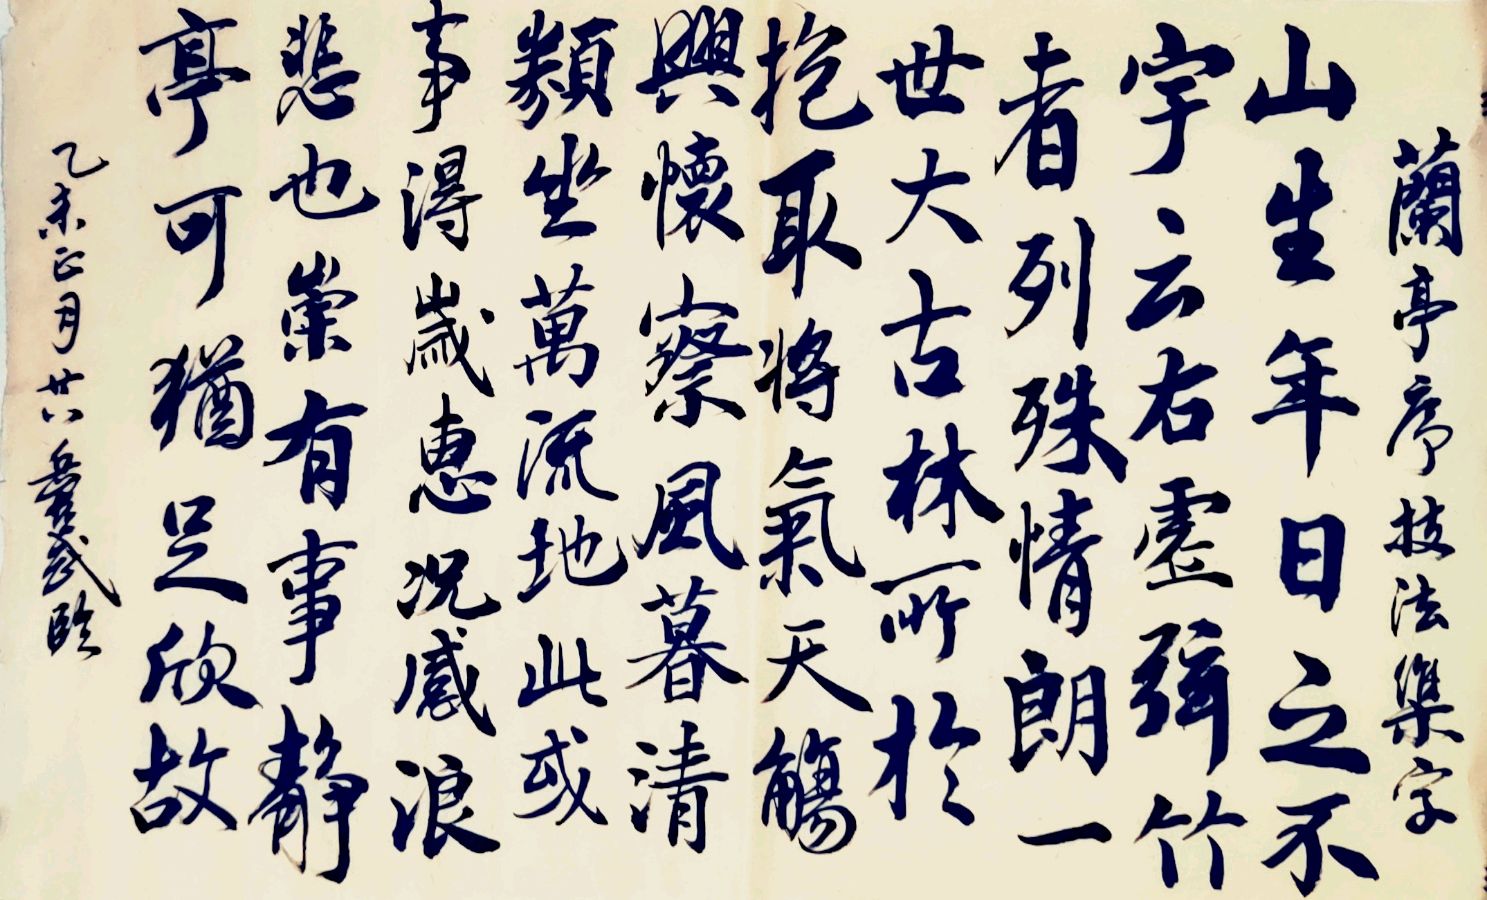 蘭亭序技法集字
山生年日之不
宇云右虛強竹
者列殊情朗一
世大古林所於
抱取將氣天觴
興懷察風暮清
類坐萬流地此或
事得歲惠況感浪
悲也崇有事靜
亭可猶足欣故
乙未正月廿八 臨